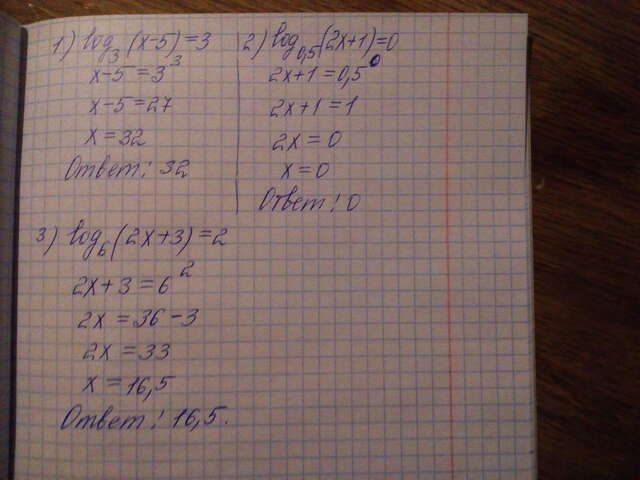 1) log₃(x-5)=3
x-5=3³
x-5=27
x=32
Ответ: 32
2) log₀,₅(2x+1)=0
2x+1=0,5⁰
2x+1=1
2x=0
x=0
Ответ: 0
3) log₆(2x+3)=2
2x+3=6²
2x=36-3
2x=33
x=16,5
Ответ: 16,5.